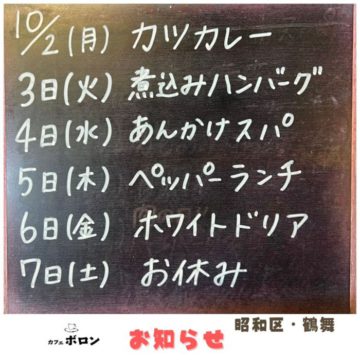 10/2(月) カツカレー
3日(火) 煮込みハンバーグ
4日(水) あんかけスパ
5日(木) ペッパーランチ
6日(金) ホワイトドリア
7日(土) お休み
カフェ ボロン
お知らせ
昭和区・鶴舞